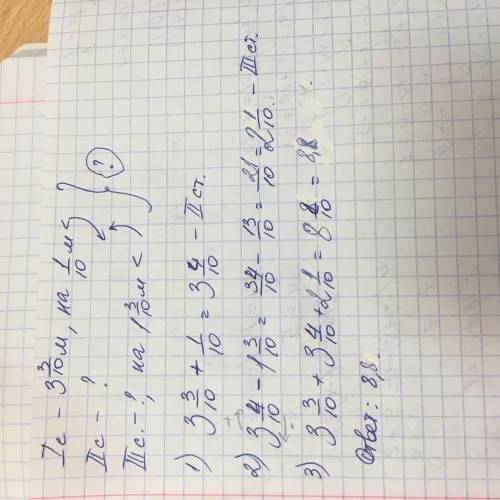 Iс – 3 3/10 м, на 1/10 м <
IIс – ?
IIIс. – ?, на 1 3/10 м <
?
1) 3 3/10 + 1/10 = 3 4/10 – II ст.
2) 3 4/10 – 1 3/10 = 34/10 – 13/10 = 21/10 = 2 1/10 – III ст.
3) 3 3/10 + 3 4/10 + 2 1/10 = 8 8/10 = 8,8
Ответ: 8,8.